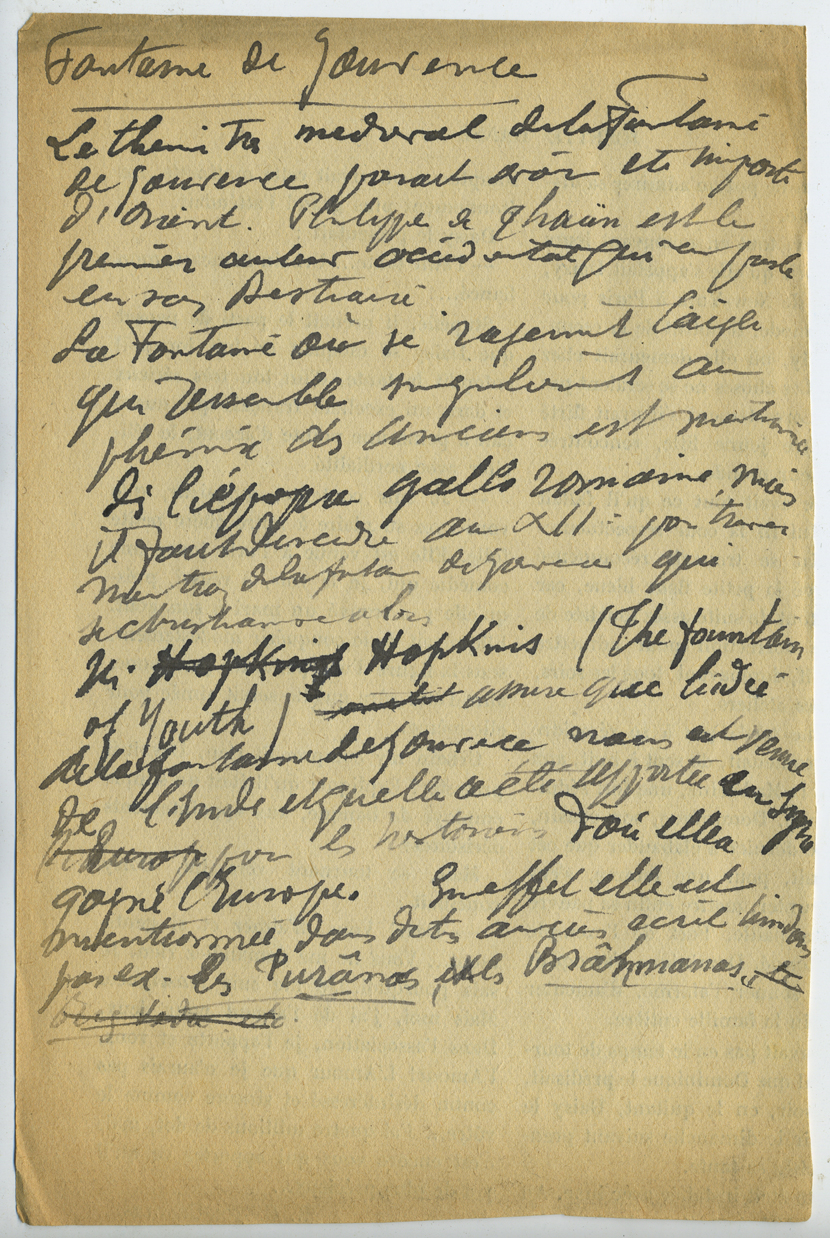 Fontaine de Jouvence
Le thème très medieval de la Fontaine
de Jouvence parait avoir ete importé
d'Orient. Philippe de Thaün est le
premier auteur occidental qui en parle
en son Bestiaire
La Fontaine où se rajeunit l'aigle
qui ressemble singulièrement au
phénix des anciens est mentionnée
ds l'époque gallo romaine, mais
il faut descendre au XII: pour trouver
mention de la fontaine de Jouvence qui
se christianise alors
Mr Hopkins Hopkins (The fountain
of Youth) assure que l'idée
de la fontaine de Jouvence nous est venue
de l'Inde et qu'elle a été apportée en Syrie
par les nestoriens d'où elle a
gagné l'Europe. En effet elle est
mentionnée dans des anciens écrits hindous
par ex. les Purânas, et les Brâhmanas,
Rig Veda etc